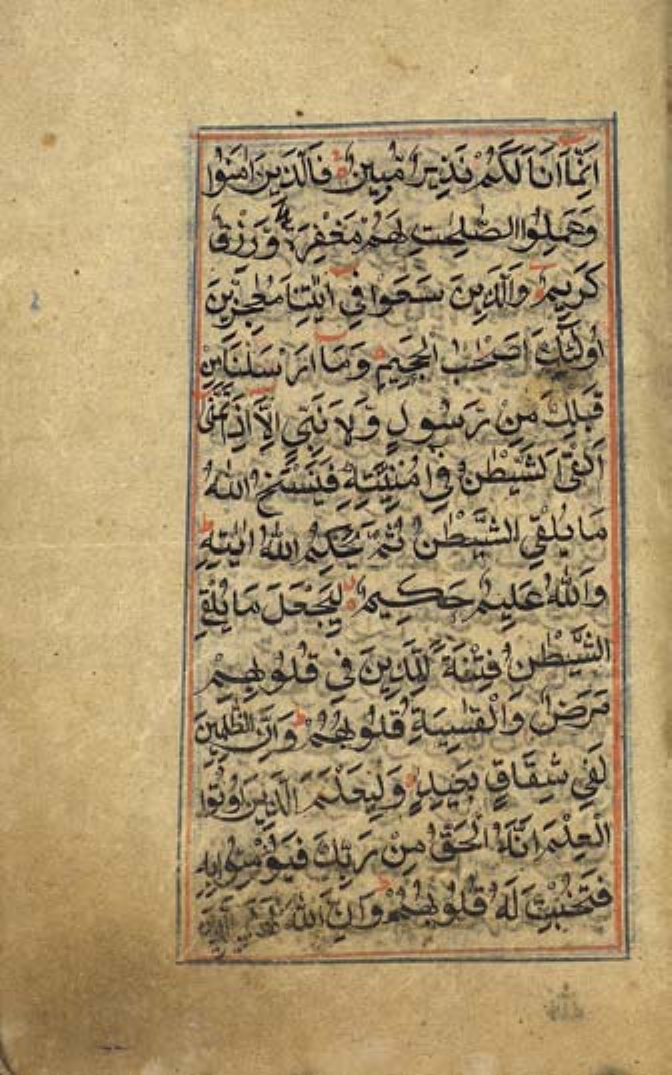 اِنَّمَا اَنَا لَكُمْ نَذِيرٌ مُّبِينٌ فَالَّذِينَ اٰمَنُوا
وَعَمِلُوا الصّٰلِحٰتِ لَهُمْ مَّغْفِرَةٌ وَّرِزْقٌ
كَرِيمٌ وَالَّذِينَ سَعَوْا فِي اٰيٰتِنَا مُعٰجِزِينَ
اُولٰئِكَ اَصْحٰبُ الْجَحِيمِ وَمَا اَرْسَلْنَا مِنْ
قَبْلِكَ مِنْ رَّسُولٍ وَّلَا نَبِيٍّ اِلَّا اِذَا تَمَنّٰى
اَلْقَى الشَّيْطٰنُ فِي اُمْنِيَّتِهِ فَيَنْسَخُ اللّٰهُ
مَا يُلْقِي الشَّيْطٰنُ ثُمَّ يُحْكِمُ اللّٰهُ اٰيٰتِهِ
وَاللّٰهُ عَلِيمٌ حَكِيمٌ لِّيَجْعَلَ مَا يُلْقِي
الشَّيْطٰنُ فِتْنَةً لِّلَّذِينَ فِي قُلُوبِهِمْ
مَّرَضٌ وَّالْقَاسِيَةِ قُلُوبُهُمْ وَاِنَّ الظّٰلِمِينَ
لَفِي شِقَاقٍ بَعِيدٍ وَّلِيَعْلَمَ الَّذِينَ اُوتُوا
الْعِلْمَ اَنَّهُ الْحَقُّ مِنْ رَّبِّكَ فَيُؤْمِنُوا بِهِ
فَتُخْبِتَ لَهُ قُلُوبُهُمْ وَاِنَّ اللّٰهَ